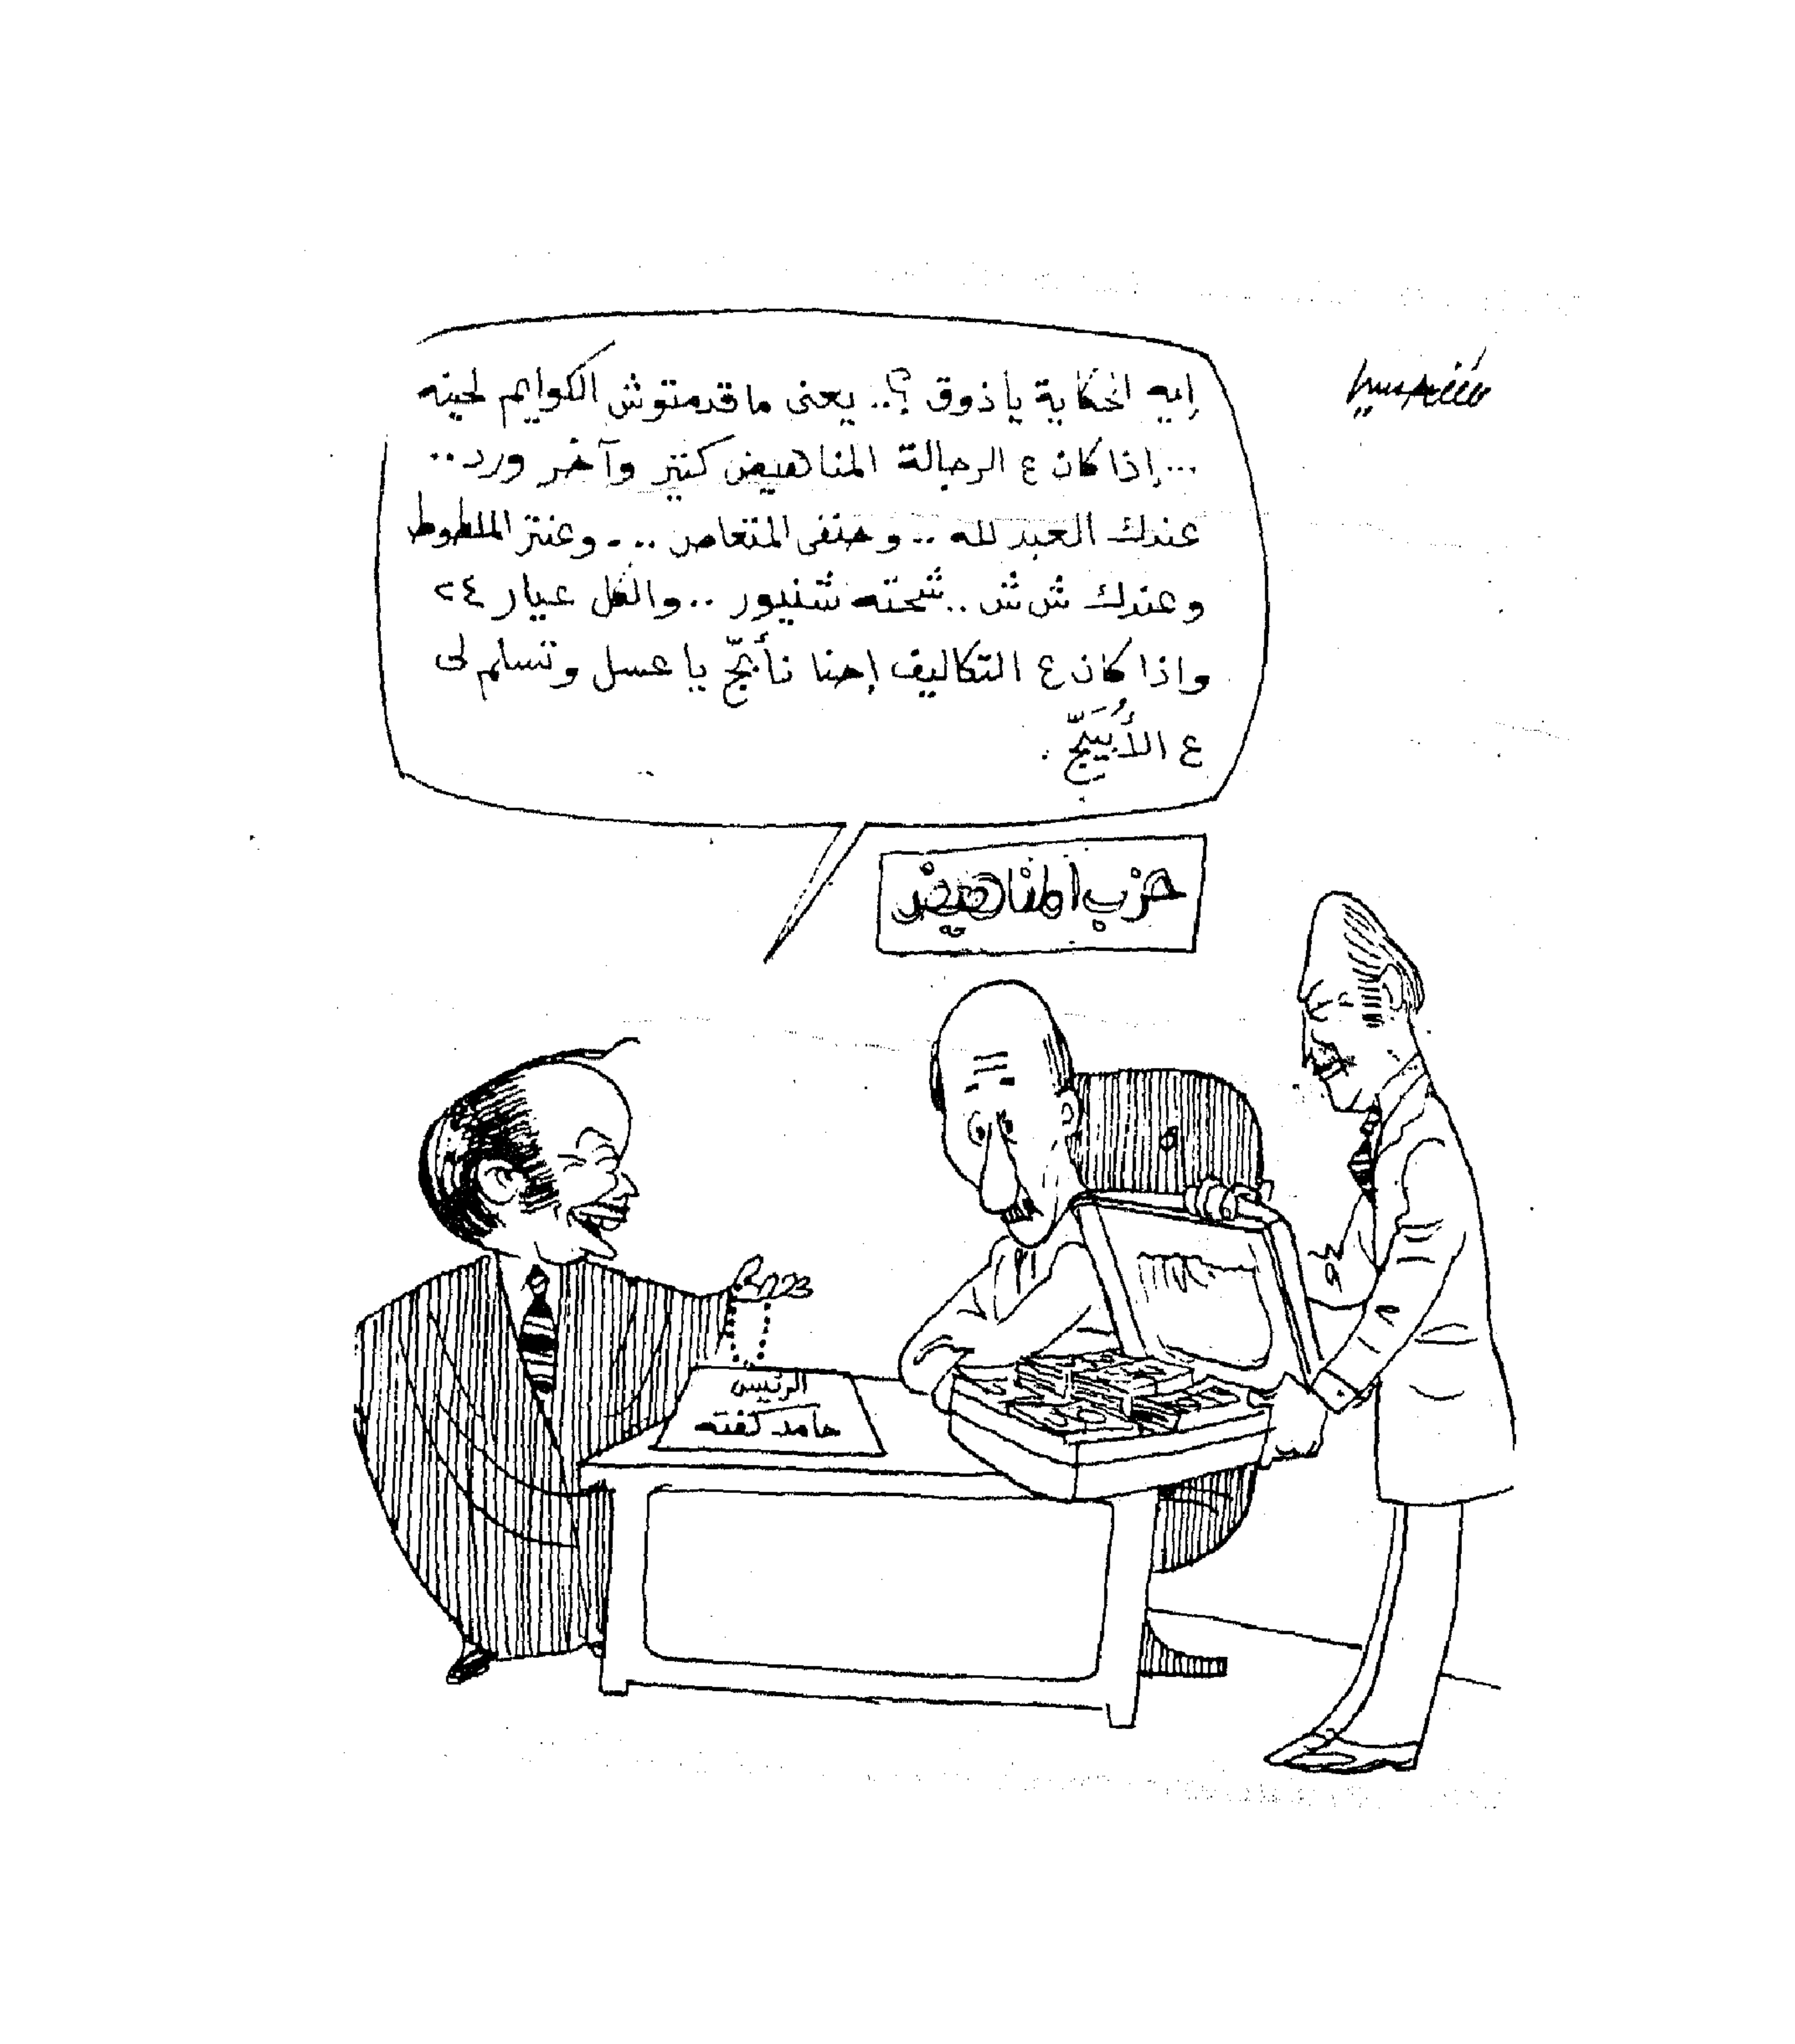 إيه الحكاية ياذوق ؟.. يعنى ماقدمتوش الكوايم لحينه
...إذا كان ع الرجالة المناهيض كتير وآخر ورد..
عندك العبد لله .. وحنفى المتعاص ... وعنتر الملطوط
وعندك ش ش .. شحته شنيور .. والكل عيار ٢٤
واذا كان ع التكاليف إحنا نأبجّ يا عسل وتسلم لى
ع الأُبَيّج .
حزب المناهيض
الرئيس
حامد كفته